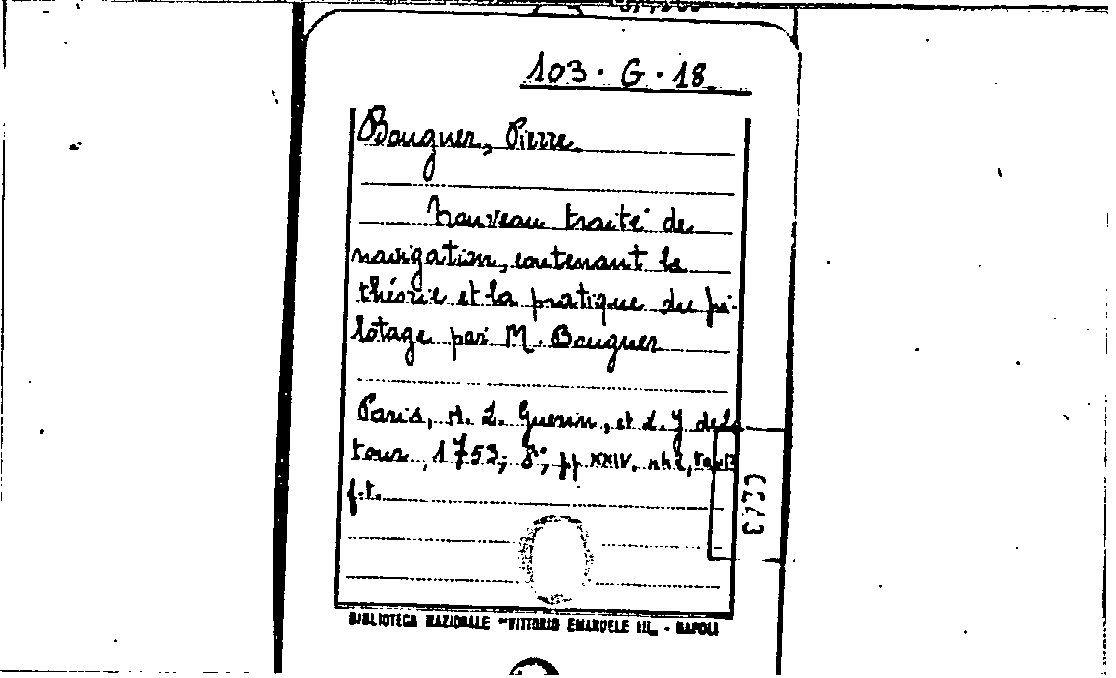 103 · G · 18
Bouguer, Pierre
Nouveau traité de
navigation, contenant la
théorie et la pratique du pi-
lotage par M. Bouguer
Paris, H. L. Guerin, et L. J. dela
tour, 1753; 8°; pp XXIV.
f.t.
BIBLIOTECA NAZIONALE "VITTORIO EMANUELE III" - NAPOLI